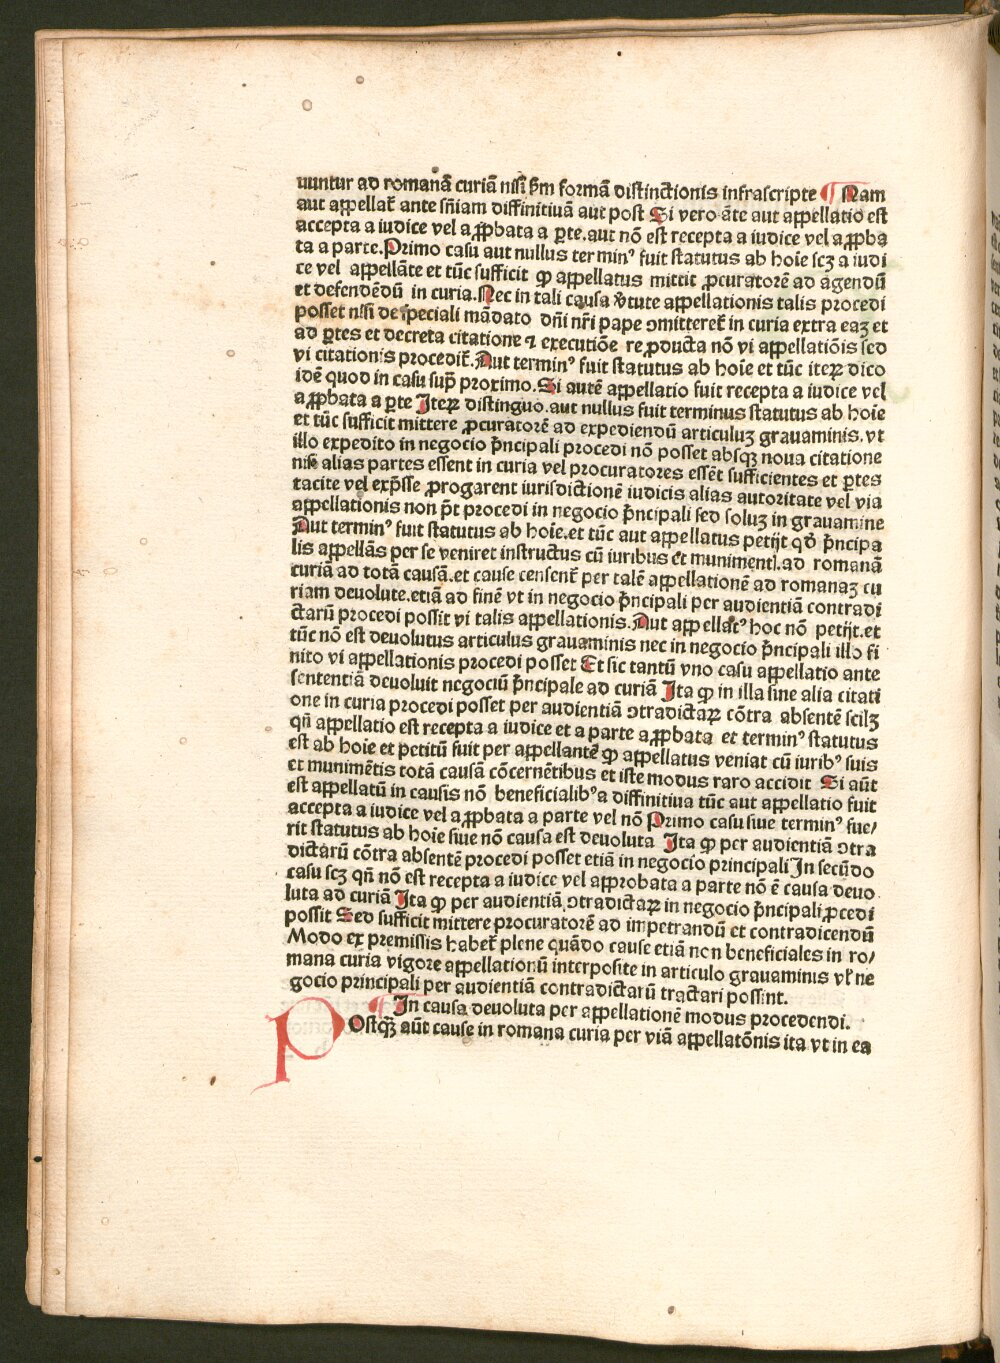 uuntur ad romanā curiā nisi ẜm formā distinctionis infrascripte ¶ Nam
aut appellat̄ ante sn̄iam diffinitiuā aut post Si vero āte aut appellatio est
accepta a iudice vel a ꝓpbata a ꝑte.aut nō est recepta a iudice vel a ꝓpba
ta a parte.Primo casu aut nullus terminꝰ fuit statutus ab hoīe scꝫ a iudi
ce vel appellāte et tūc sufficit ꝙ appellatus mittit ꝓcuratorē ad agendū
et defendēdū in curia.Nec in tali causa v̄tute appellationis talis procedi
posset nisi de speciali mādato dn̄i nr̄i pape ↄmitteret̄ in curia extra eaꝫ et
ad ꝑtes et decreta citatione ⁊ executiōe reꝓducta nō vi appellatiōis sed
vi citationis procedit̄.Aut terminꝰ fuit statutus ab hoīe et tūc iteꝝ dico
idē quod in casu sup̄ proximo.Si autē appellatio fuit recepta a iudice vel
a ꝓpbata a ꝑte Iteꝝ distinguo.aut nullus fuit terminus statutus ab hoīe
et tūc sufficit mittere ꝓcuratorē ad expediendū articuluꝫ grauaminis.vt
illo expedito in negocio p̄ncipali procedi nō posset absqꝫ noua citatione
nisi alias partes essent in curia vel procuratores essēt sufficientes et ꝑtes
tacite vel exp̄sse ꝓrogarent iurisdictionē iudicis alias autoritate vel via
appellationis non p̄t procedi in negocio p̄ncipali sed soluꝫ in grauamine
Aut terminꝰ fuit statutus ab hoīe.et tūc aut appellatus petijt qd̄ p̄ncipa
lis appellās per se veniret instructus cū iuribus et muniment}.ad romanā
curiā ad totā causā.et cause censent̄ per talē appellationē ad romanaꝫ cu
riam deuolute.etiā ad finē vt in negocio p̄ncipali per audientiā contradi
ctarū procedi possit vi talis appellationis.Aut appellatꝰ hoc nō petijt.et
tūc nō est deuolutus articulus grauaminis nec in negocio p̄ncipali illo fi
nito vi appellationis procedi posset Et sic tantū vno casu appellatio ante
sententiā deuoluit negociū p̄ncipale ad curiā Ita ꝙ in illa sine alia citati
one in curia procedi posset per audientiā ↄtradictaꝝ cōtra absentē scilꝫ
qn̄ appellatio est recepta a iudice et a parte a ꝓpbata et terminꝰ statutus
est ab hoīe et petitū fuit per appellantē ꝙ appellatus veniat cū iuribꝰ suis
et munimētis totā causā cōcernētibus et iste modus raro accidit Si aūt
est appellatū in causis nō beneficialibꝰ a diffinitiua tūc aut appellatio fuit
accepta a iudice vel a ꝓpbata a parte vel nō Primo casu siue terminꝰ fue/
rit statutus ab hoīe siue nō causa est deuoluta Ita ꝙ per audientiā ↄtra
dictarū cōtra absentē procedi posset etiā in negocio principali In secūdo
casu scꝫ qn̄ nō est recepta a iudice vel approbata a parte nō ē causa deuo
luta ad curiā Ita ꝙ per audientiā ↄtradictaꝝ in negocio p̄ncipali ꝓcedi
possit Sed sufficit mittere procuratorē ad impetrandū et contradicendū
Modo ex premissis habet̄ plene quādo cause etiā non beneficiales in ro/
mana curia vigore appellationū interposite in articulo grauaminis vl̄ ne
gocio principali per audientiā contradictarū tractari possint.
¶ In causa deuoluta per appellationē modus procedendi.
POstꝙ̄ aūt cause in romana curia per viā appellatōnis ita vt in ea